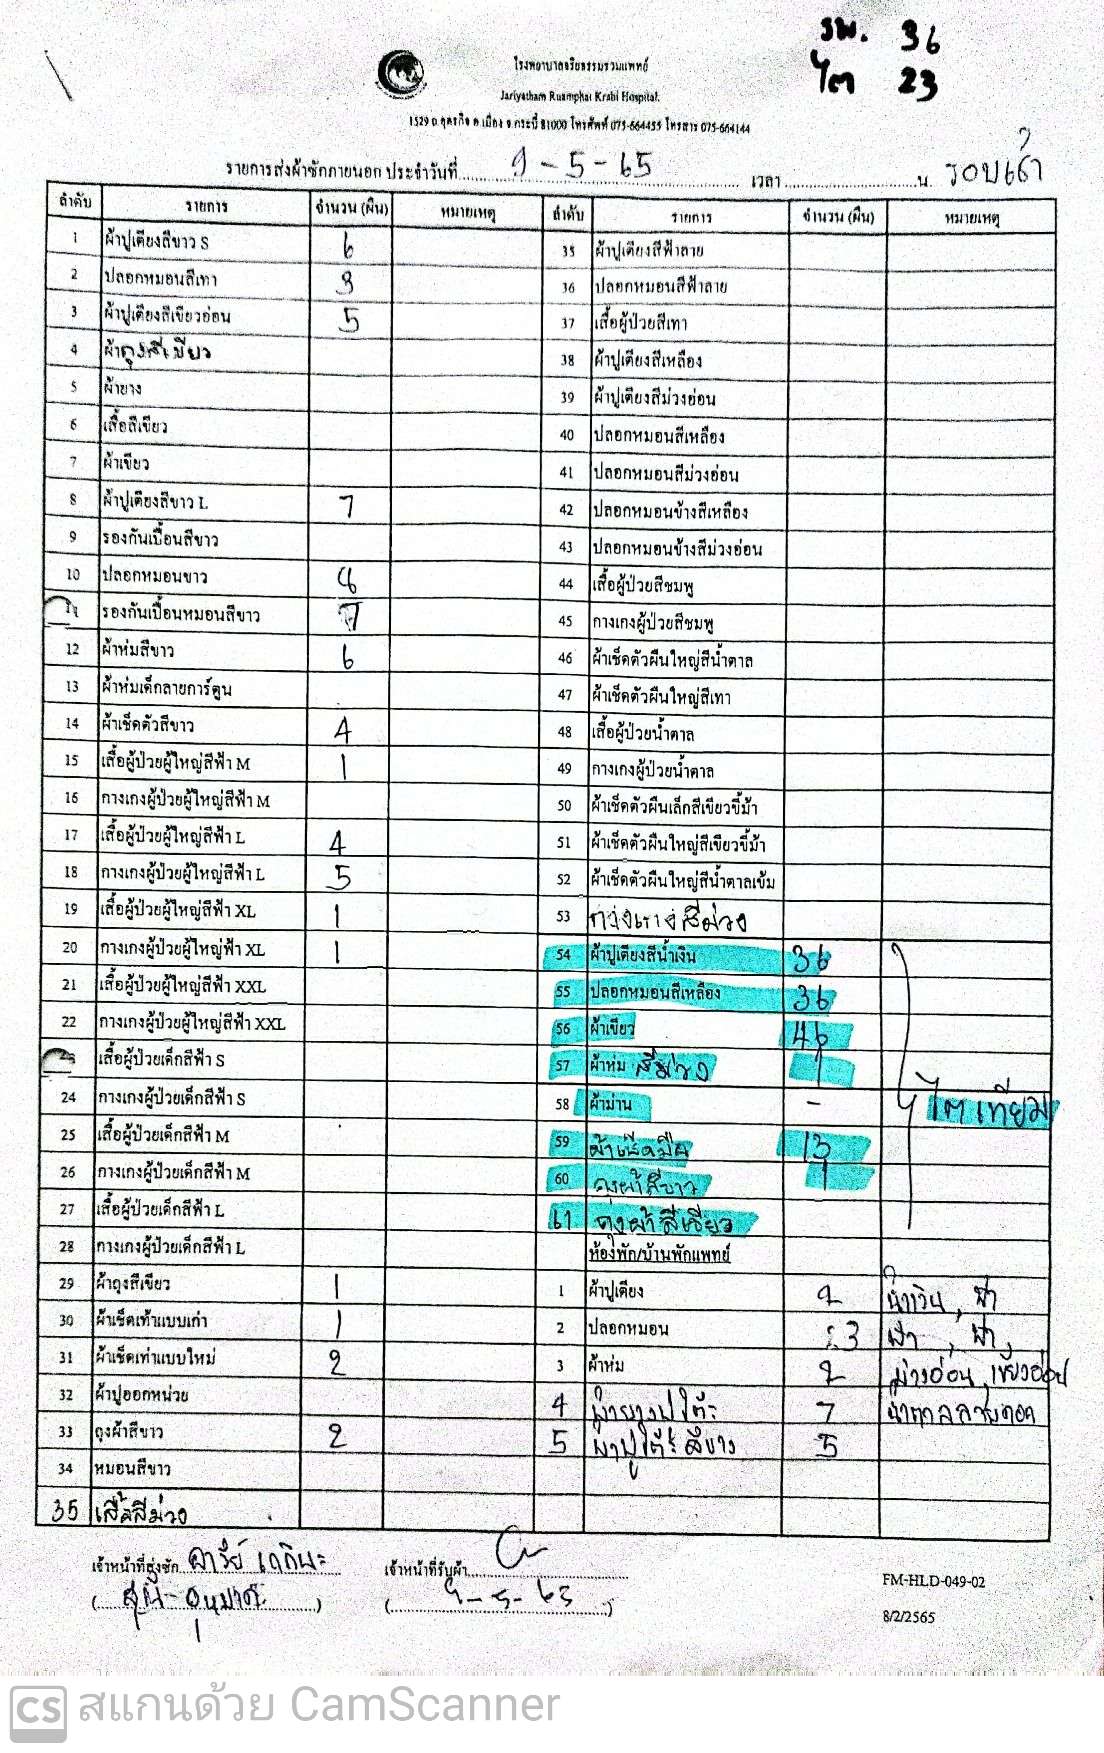 รพ. 36
ไต 23
โรงพยาบาลจริยธรรมรวมแพทย์
Jariyatham Ruamphat Krabi Hospital.
1529 ถ.อุตรกิจ ต.เมือง จ.กระบี่ 81000 โทรศัพท์ 075-664455 โทรสาร 075-664144
รายการส่งผ้าซักภายนอก ประจำวันที่ 9-5-65 เวลา น. รอบเช้า
ลำดับ รายการ จำนวน (ผืน) หมายเหตุ ลำดับ รายการ จำนวน (ผืน) หมายเหตุ
1 ผ้าปูเตียงสีขาว S 6 35 ผ้าปูเตียงสีฟ้าลาย
2 ปลอกหมอนสีเทา 3 36 ปลอกหมอนสีฟ้าลาย
3 ผ้าปูเตียงสีเขียวอ่อน 5 37 เสื้อผู้ป่วยสีเทา
4 ผ้าถุงสีเขียว 38 ผ้าปูเตียงสีเหลือง
5 ผ้ายาง 39 ผ้าปูเตียงสีม่วงอ่อน
6 เสื้อสีเขียว 40 ปลอกหมอนสีเหลือง
7 ผ้าเขียว 41 ปลอกหมอนสีม่วงอ่อน
8 ผ้าปูเตียงสีขาว L 7 42 ปลอกหมอนข้างสีเหลือง
9 รองกันเปื้อนสีขาว 43 ปลอกหมอนข้างสีม่วงอ่อน
10 ปลอกหมอนขาว 8 44 เสื้อผู้ป่วยสีชมพู
11 รองกันเปื้อนหมอนสีขาว 7 45 กางเกงผู้ป่วยสีชมพู
12 ผ้าห่มสีขาว 6 46 ผ้าเช็ดตัวผืนใหญ่สีน้ำตาล
13 ผ้าห่มเด็กลายการ์ตูน 47 ผ้าเช็ดตัวผืนใหญ่สีเทา
14 ผ้าเช็ดตัวสีขาว 4 48 เสื้อผู้ป่วยน้ำตาล
15 เสื้อผู้ป่วยผู้ใหญ่สีฟ้า M 1 49 กางเกงผู้ป่วยน้ำตาล
16 กางเกงผู้ป่วยผู้ใหญ่สีฟ้า M 50 ผ้าเช็ดตัวผืนเล็กสีเขียวขี้ม้า
17 เสื้อผู้ป่วยผู้ใหญ่สีฟ้า L 4 51 ผ้าเช็ดตัวผืนใหญ่สีเขียวขี้ม้า
18 กางเกงผู้ป่วยผู้ใหญ่สีฟ้า L 5 52 ผ้าเช็ดตัวผืนใหญ่สีน้ำตาลเข้ม
19 เสื้อผู้ป่วยผู้ใหญ่สีฟ้า XL 1 53 กางเกงสีม่วง
20 กางเกงผู้ป่วยผู้ใหญ่ฟ้า XL 1 54 ผ้าปูเตียงสีน้ำเงิน 36
21 เสื้อผู้ป่วยผู้ใหญ่สีฟ้า XXL 55 ปลอกหมอนสีเหลือง 36
22 กางเกงผู้ป่วยผู้ใหญ่สีฟ้า XXL 56 ผ้าเขียว 46
23 เสื้อผู้ป่วยเด็กสีฟ้า S 57 ผ้าห่ม สีม่วง 1
24 กางเกงผู้ป่วยเด็กสีฟ้า S 58 ผ้าม่าน - ไตเทียม
25 เสื้อผู้ป่วยเด็กสีฟ้า M 59 ผ้าเช็ดมือ 13
26 กางเกงผู้ป่วยเด็กสีฟ้า M 60 ถุงผ้าสีขาว 1
27 เสื้อผู้ป่วยเด็กสีฟ้า L 61 ถุงผ้าสีเขียว
28 กางเกงผู้ป่วยเด็กสีฟ้า L ห้องพัก/บ้านพักแพทย์
29 ผ้าถุงสีเขียว 1 1 ผ้าปูเตียง 2 น้ำเงิน, ฟ้า
30 ผ้าเช็ดเท้าแบบเก่า 1 2 ปลอกหมอน 3 เทา, ฟ้า,
31 ผ้าเช็ดเท้าแบบใหม่ 2 3 ผ้าห่ม 2 ม่วงอ่อน, เขียวอ่อน
32 ผ้าปูออกหน่วย 4 ผ้ายางปูโต๊ะ 7 น้ำตาลลายดอก
33 ถุงผ้าสีขาว 2 5 ผ้าปูโต๊ะสีขาว 5
34 หมอนสีขาว
35 เสื้อสีม่วง
เจ้าหน้าที่ส่งซัก เจ้าหน้าที่รับผ้า
9-5-65
FM-HLD-049-02
8/2/2565
CS สแกนด้วย CamScanner